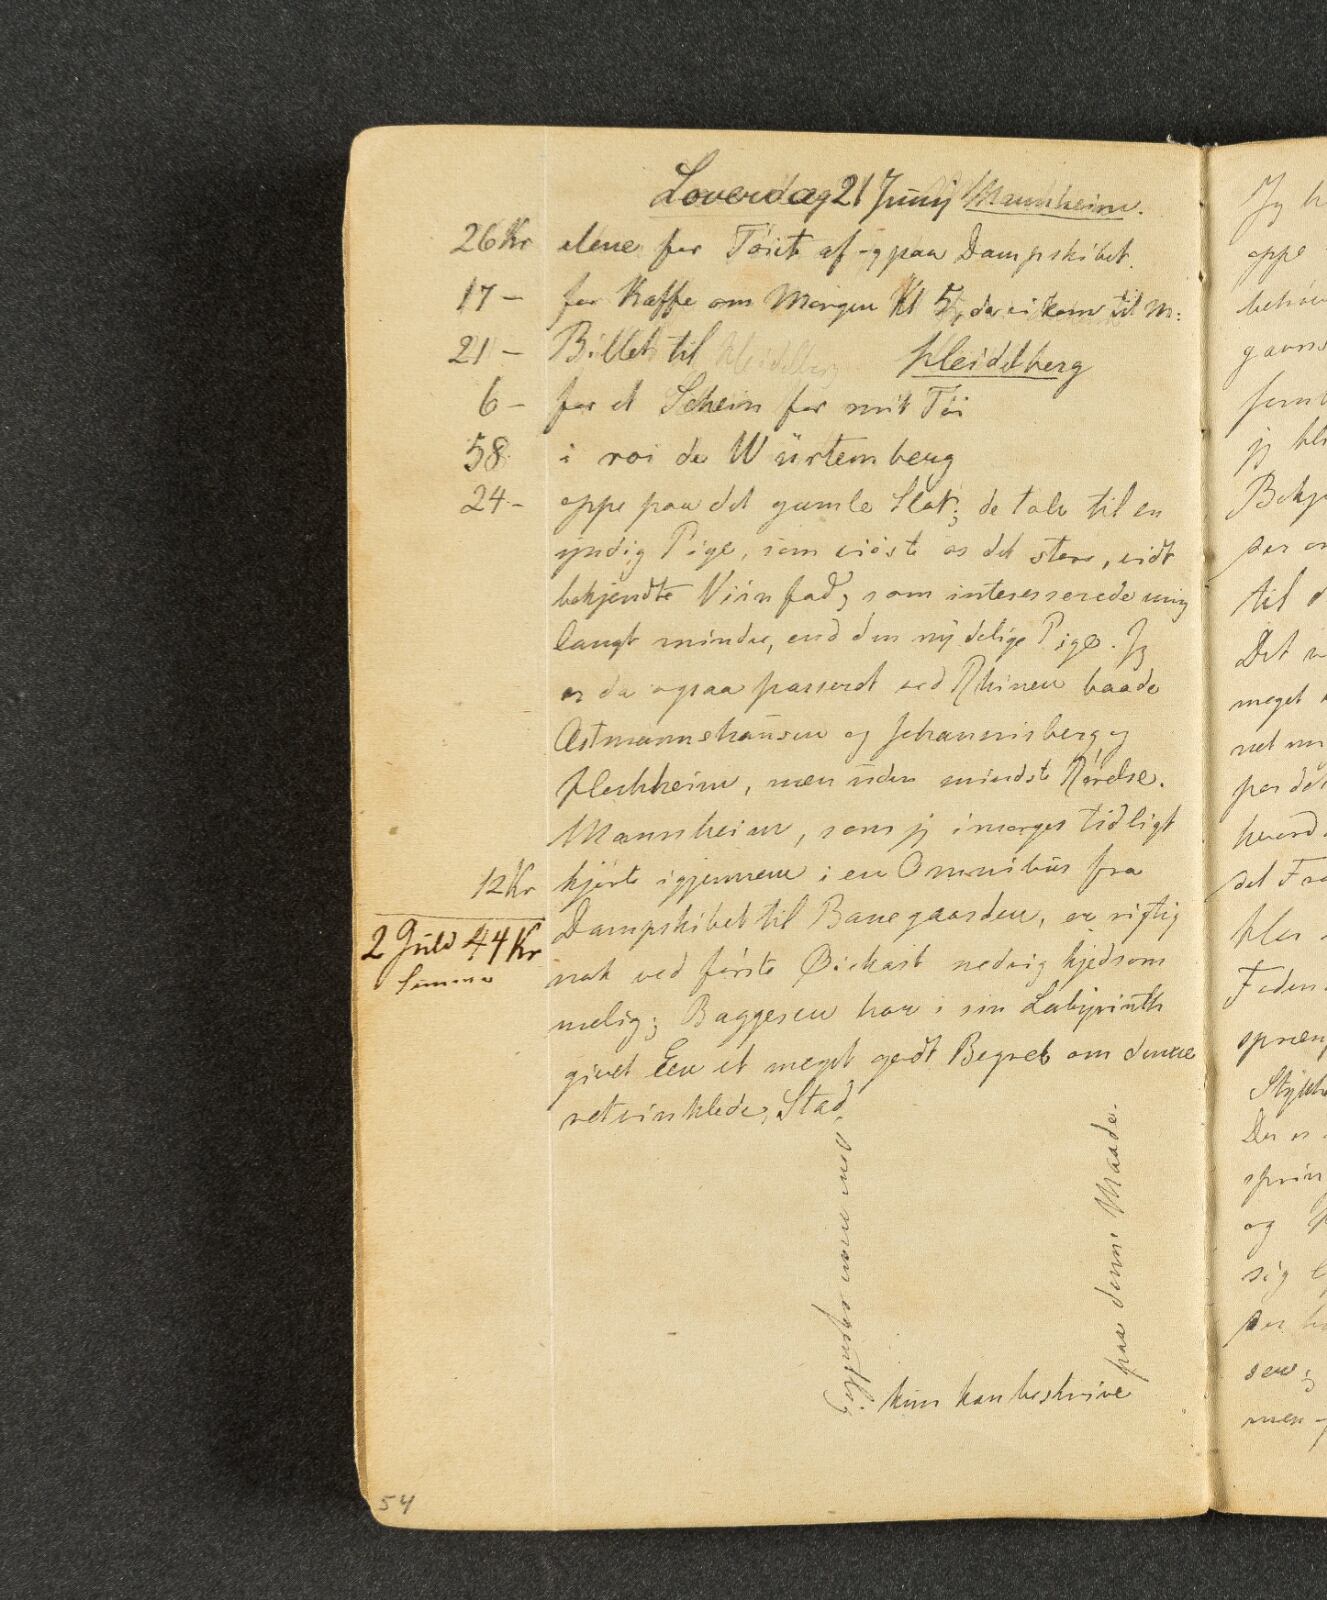 Loverdag 21 Junij Mannheim.
26 Kr alene for Töiet af og paa Dampskibet.
17 – for Kaffe om Morgen Kl 5, da vi kom til M:
21 – Billet til Heidelberg
6 – for et Schein for mit Töi
58 i roi de Würtemberg
24 – oppe paa det gamle Slot; de talv til en
yndig Pige, som viiste os det store, vidt
bekjendte Viinfad, som interesserede mig
langt mindre, end den nydelige Pige. Jeg
er da ogsaa passeret ved Rhinen baade
Astmannshausen og Johannisberg og
Hochheim, men uden mindste Rörelse.
Mannheim, som jeg imorges tidligt
12 Kr kjörte igjennem i en Omnibus fra
Dampskibet til Banegaarden, er rigtig
2 Guld 44 Kr
Summa
nok ved förste Öiekast nedrig kjedsom
melig; Baggesen har i sin Labyrinth
givet Een et meget godt Begreb om denne
retvinklede Stad,
kun kan beskrive
paa denne Maade.
54
Jeg h
oppe
gavns
jeg bl
til
Det v
meget
hvord
det Fra
og